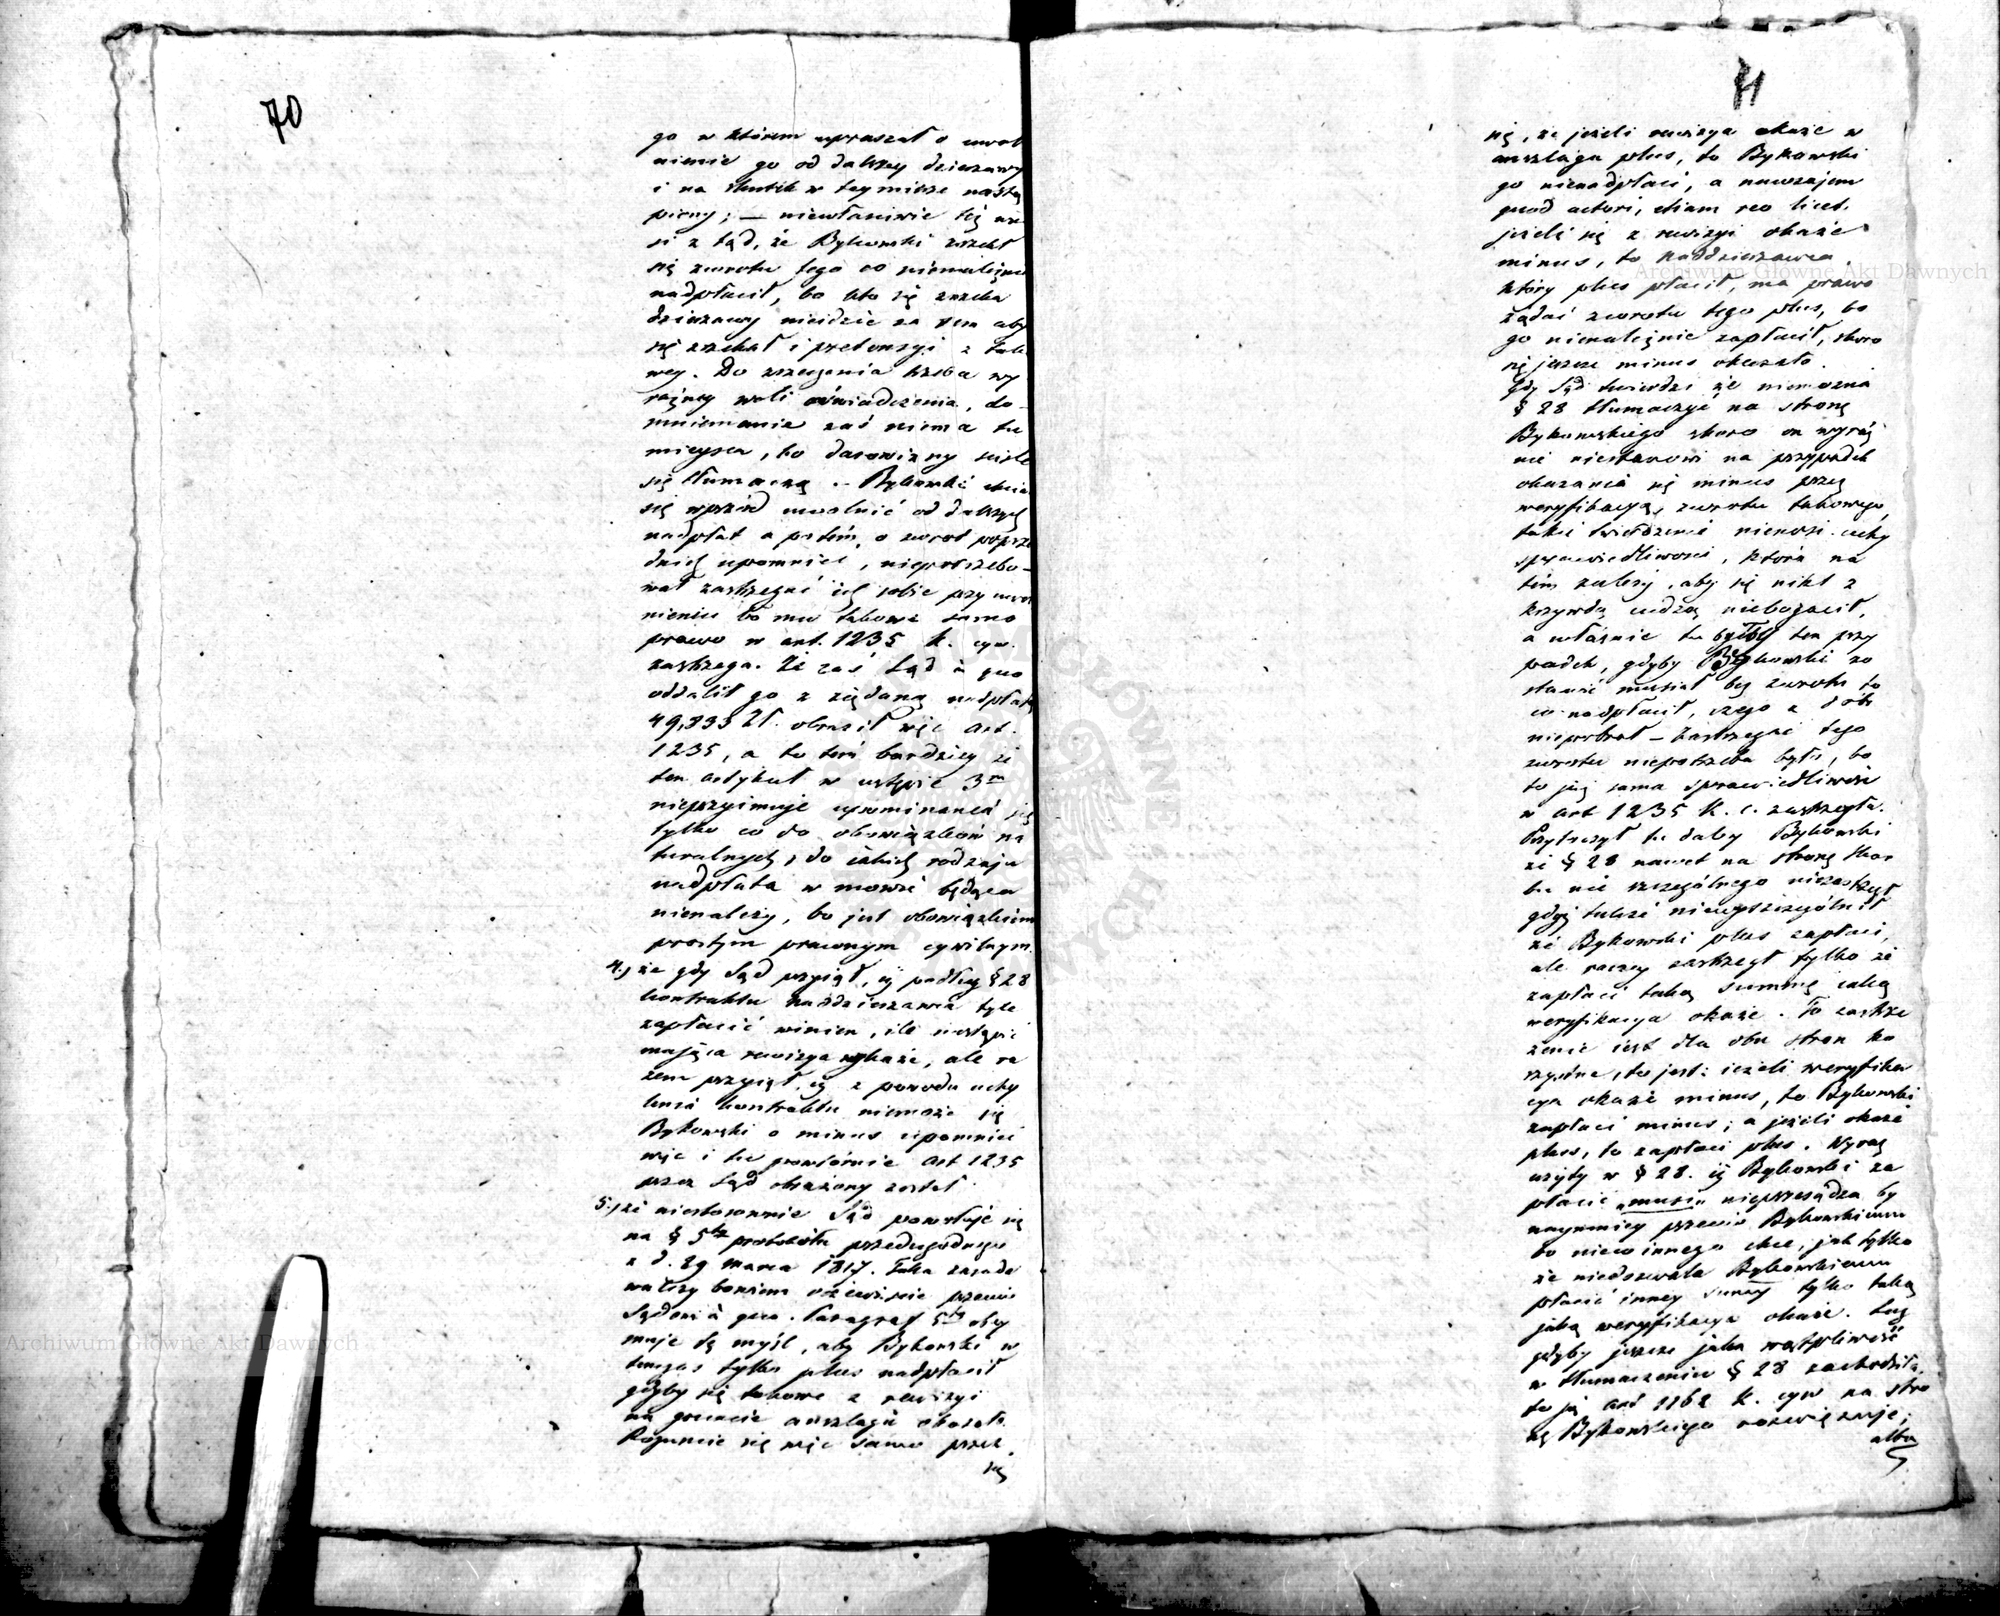 70
go w którem upraszał o uwol
nienie go od dalszey dzierzawy
i na skutek w tey mierze nastą
piony; — niewłaściwie Sąd
si z tąd, że Bykowski zrzekł
się zwrotu tego co nienależnie
nadpłacił, bo kto się zrzeka
dzierzawy nieidzie za tem aby
się zrzekał i pretensyi z tako
wey. Do zrzeczenia trzeba wy
raźney woli oświadczenia, do-
mniemanie zaś niema tu
mieysca, bo darowizny ściśle
się tłumaczą. – Bykowski chciał
się wprzód uwolnić od dalszych
nadpłat a potém o zwrot poprze
dnich upomnieć, niepotrzebo-
wał zastrzegać ich sobie przy uwol
nieniu bo mu takowe samo
prawo w art. 1235 k. cyw.
zastrzega. Że zaś Sąd à quo
oddalił go z żądaną nadpłatą
49,333 Zł. obraził więc Art.
1235, a to tem bardziey że
ten artykuł w ustępie 3m
nieprzyimuje upominania się
tylko co do obowiązków na
turalnych, do jakich rodzaju
nadpłata w mowie będąca
nienależy, bo jest obowiązkiem
prostym prawnym cywilnym.
4.) że gdy Sąd przyiął, iż podług § 28
kontraktu Naddzierzawca tyle
zapłacić winien, ile nastąpić
mająca rewizya wykaże, ale ra
zem przyiął, iż z powodu uchy
lenia kontraktu niemoże się
Bykowski o minus upomnieć
więc i tu powtórnie Art 1235
przez Sąd obrażony został
5.) że niestosownie Sąd powołuje się
na § 5ty protokółu przedugodnego
z d. 29 Marca 1817. Taka zasada
walczy bowiem oczewiście przeciw
Sądowi à quo. Paragraf 5ty obey
muje tę myśl, aby Bykowski w
tenczas tylko plus nadpłacił
gdyby się takowe z rewizyi
na gruncie anszlagu okazało.
Rozumie się więc samo przez
się
71
się, że jeżeli rewizya okaże w
anszlagu plus, to Bykowski
go nienadpłaci, a nawzajem
quod actori, etiam reo licet.
jeżeli się z rewizyi okaże
minus, to Naddzierzawca
który plus płacił, ma prawo
żądać zwrotu tego plus, bo
go nienależnie zapłacił, skoro
się jeszcze minus okazało.
Gdy Sąd twierdzi że niemożna
§ 28 tłumaczyć na stronę
Bykowskiego skoro on wyraź
nie niestanowi na przypadek
okazania się minus przez
weryfikacyą, zwrotu takowego,
takie twierdzenie nienosi cechy
sprawiedliwości, która na
tém zależy, aby się nikt z
krzywdą cudzą niebogacił,
a właśnie tu byłby ten przy
padek, gdyby Bykowski zo
stawić musiał bez zwrotu to
co nadpłacił, czego z dóbr
niepobrał – Zastrzegać tego
zwrotu niepotrzeba było, bo
to już sama sprawiedliwość
w art 1235 K. c. zastrzegła.
Przytoczył tu daley Bykowski
że § 28 nawet na stronę Skar
bu nic szczególnego niezastrzegł
gdyż także niewyszczególnił
że Bykowski plus zapłaci,
ale raczey zastrzegł tylko że
zapłaci taką Summę jaką
weryfikacya okaże. To zastrze
żenie jest dla obu stron ko
rzystne, to jest: jeżeli weryfika
cya okaże minus, to Bykowski
zapłaci minus; a jeżeli okaże
plus, to zapłaci plus. Wyraz
użyty w § 28. iż Bykowski za
płacić „musi„ nieprzesądza by
naymniey przeciw Bykowskiemu
bo nic innego chce, jak tylko
że niedozwala Bykowskiemu
płacić inney Summy tylko taką
jaką weryfikacya okaże. Lecz
gdyby jeszcze jaka wątpliwość
w tłumaczeniu § 28 zachodziła,
to ją Art 1162 K. cyw na stro
nę Bykowskiego rozwiązuje;
albo